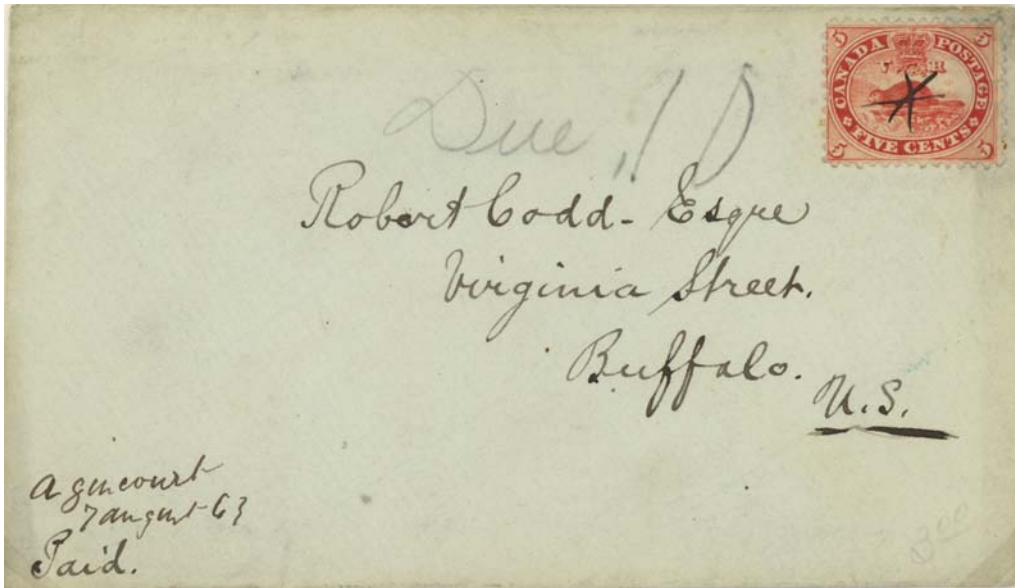 5 CANADA POSTAGE 5
5 FIVE CENTS 5
Due 10
Robert Codd - Esqre
Virginia Street.
Buffalo.
U.S.
Agincourt
7 august 63
Paid.
300